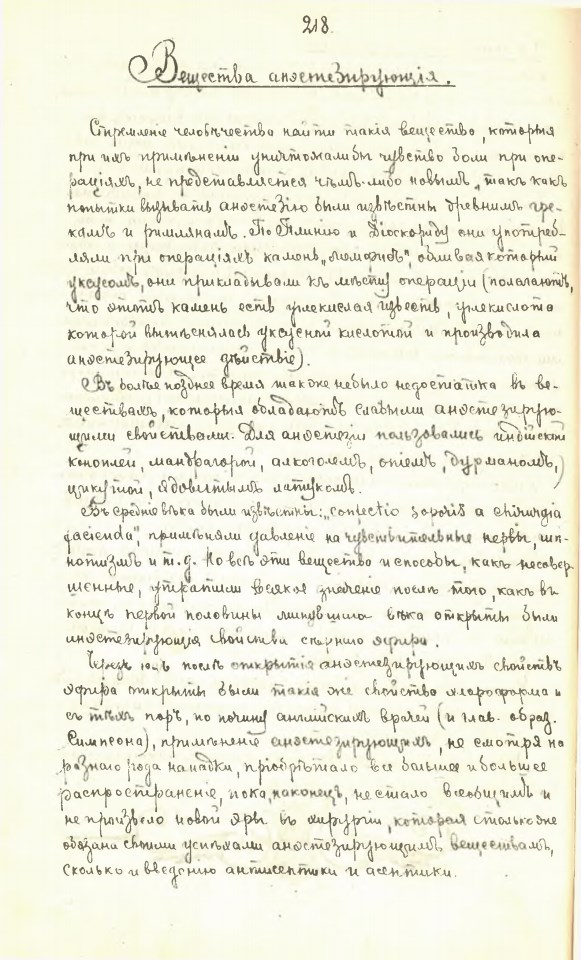 218.
Вещества анэстезирующія.
Стремленіе человѣчества найти такія вещества, которыя
при ихъ примѣненіи уничтожали бы чувство боли при опе-
раціяхъ, не представляется чѣмъ-либо новымъ, такъ какъ
попытки вызывать анэстезію были извѣстны древнимъ гре-
камъ и римлянамъ. По Плинію и Діоскориду они употреб-
ляли при операціяхъ камень „мемфисъ", обливая который
уксусомъ, они прикладывали къ мѣсту операціи (полагаютъ,
что этотъ камень есть углекислая известь, углекислота
которой вытѣснялась уксусной кислотой и производила
анэстезирующее дѣйствіе).
Въ болѣе позднее время также не было недостатка въ ве-
ществахъ, которыя обладаютъ слабыми анэстезирую-
щими свойствами. Для анэстезіи пользовались индійской
коноплей, мандрагорой, алкоголемъ, опіемъ, дурманомъ,
цикутой, ядовитымъ латукомъ.
Въ средніе вѣка были извѣстны: „confectio soporis a chirurgia
facienda", примѣняли давленіе на чувствительные нервы, гип-
нотизмъ и т.д. Но всѣ эти вещества и способы, какъ несовер-
шенные, утратили всякое значеніе послѣ того, какъ въ
концѣ первой половины минувшаго вѣка открыты были
анэстезирующія свойства сѣрнаго эфира.
Черезъ годъ послѣ открытія анэстезирующихъ свойствъ
эфира открыты были такія же свойства хлороформа и
съ тѣхъ поръ, по почину англійскихъ врачей (и глав. образ.
Симпсона), примѣненіе анэстезирующихъ, не смотря на
разнаго рода нападки, пріобрѣтало все большее и большее
распространеніе, пока, наконецъ, не стало всеобщимъ и
не произвело новой эры въ хирургіи, которая столько же
обязана своими успѣхами анэстезирующимъ веществамъ,
сколько и введенію антисептики и асептики.